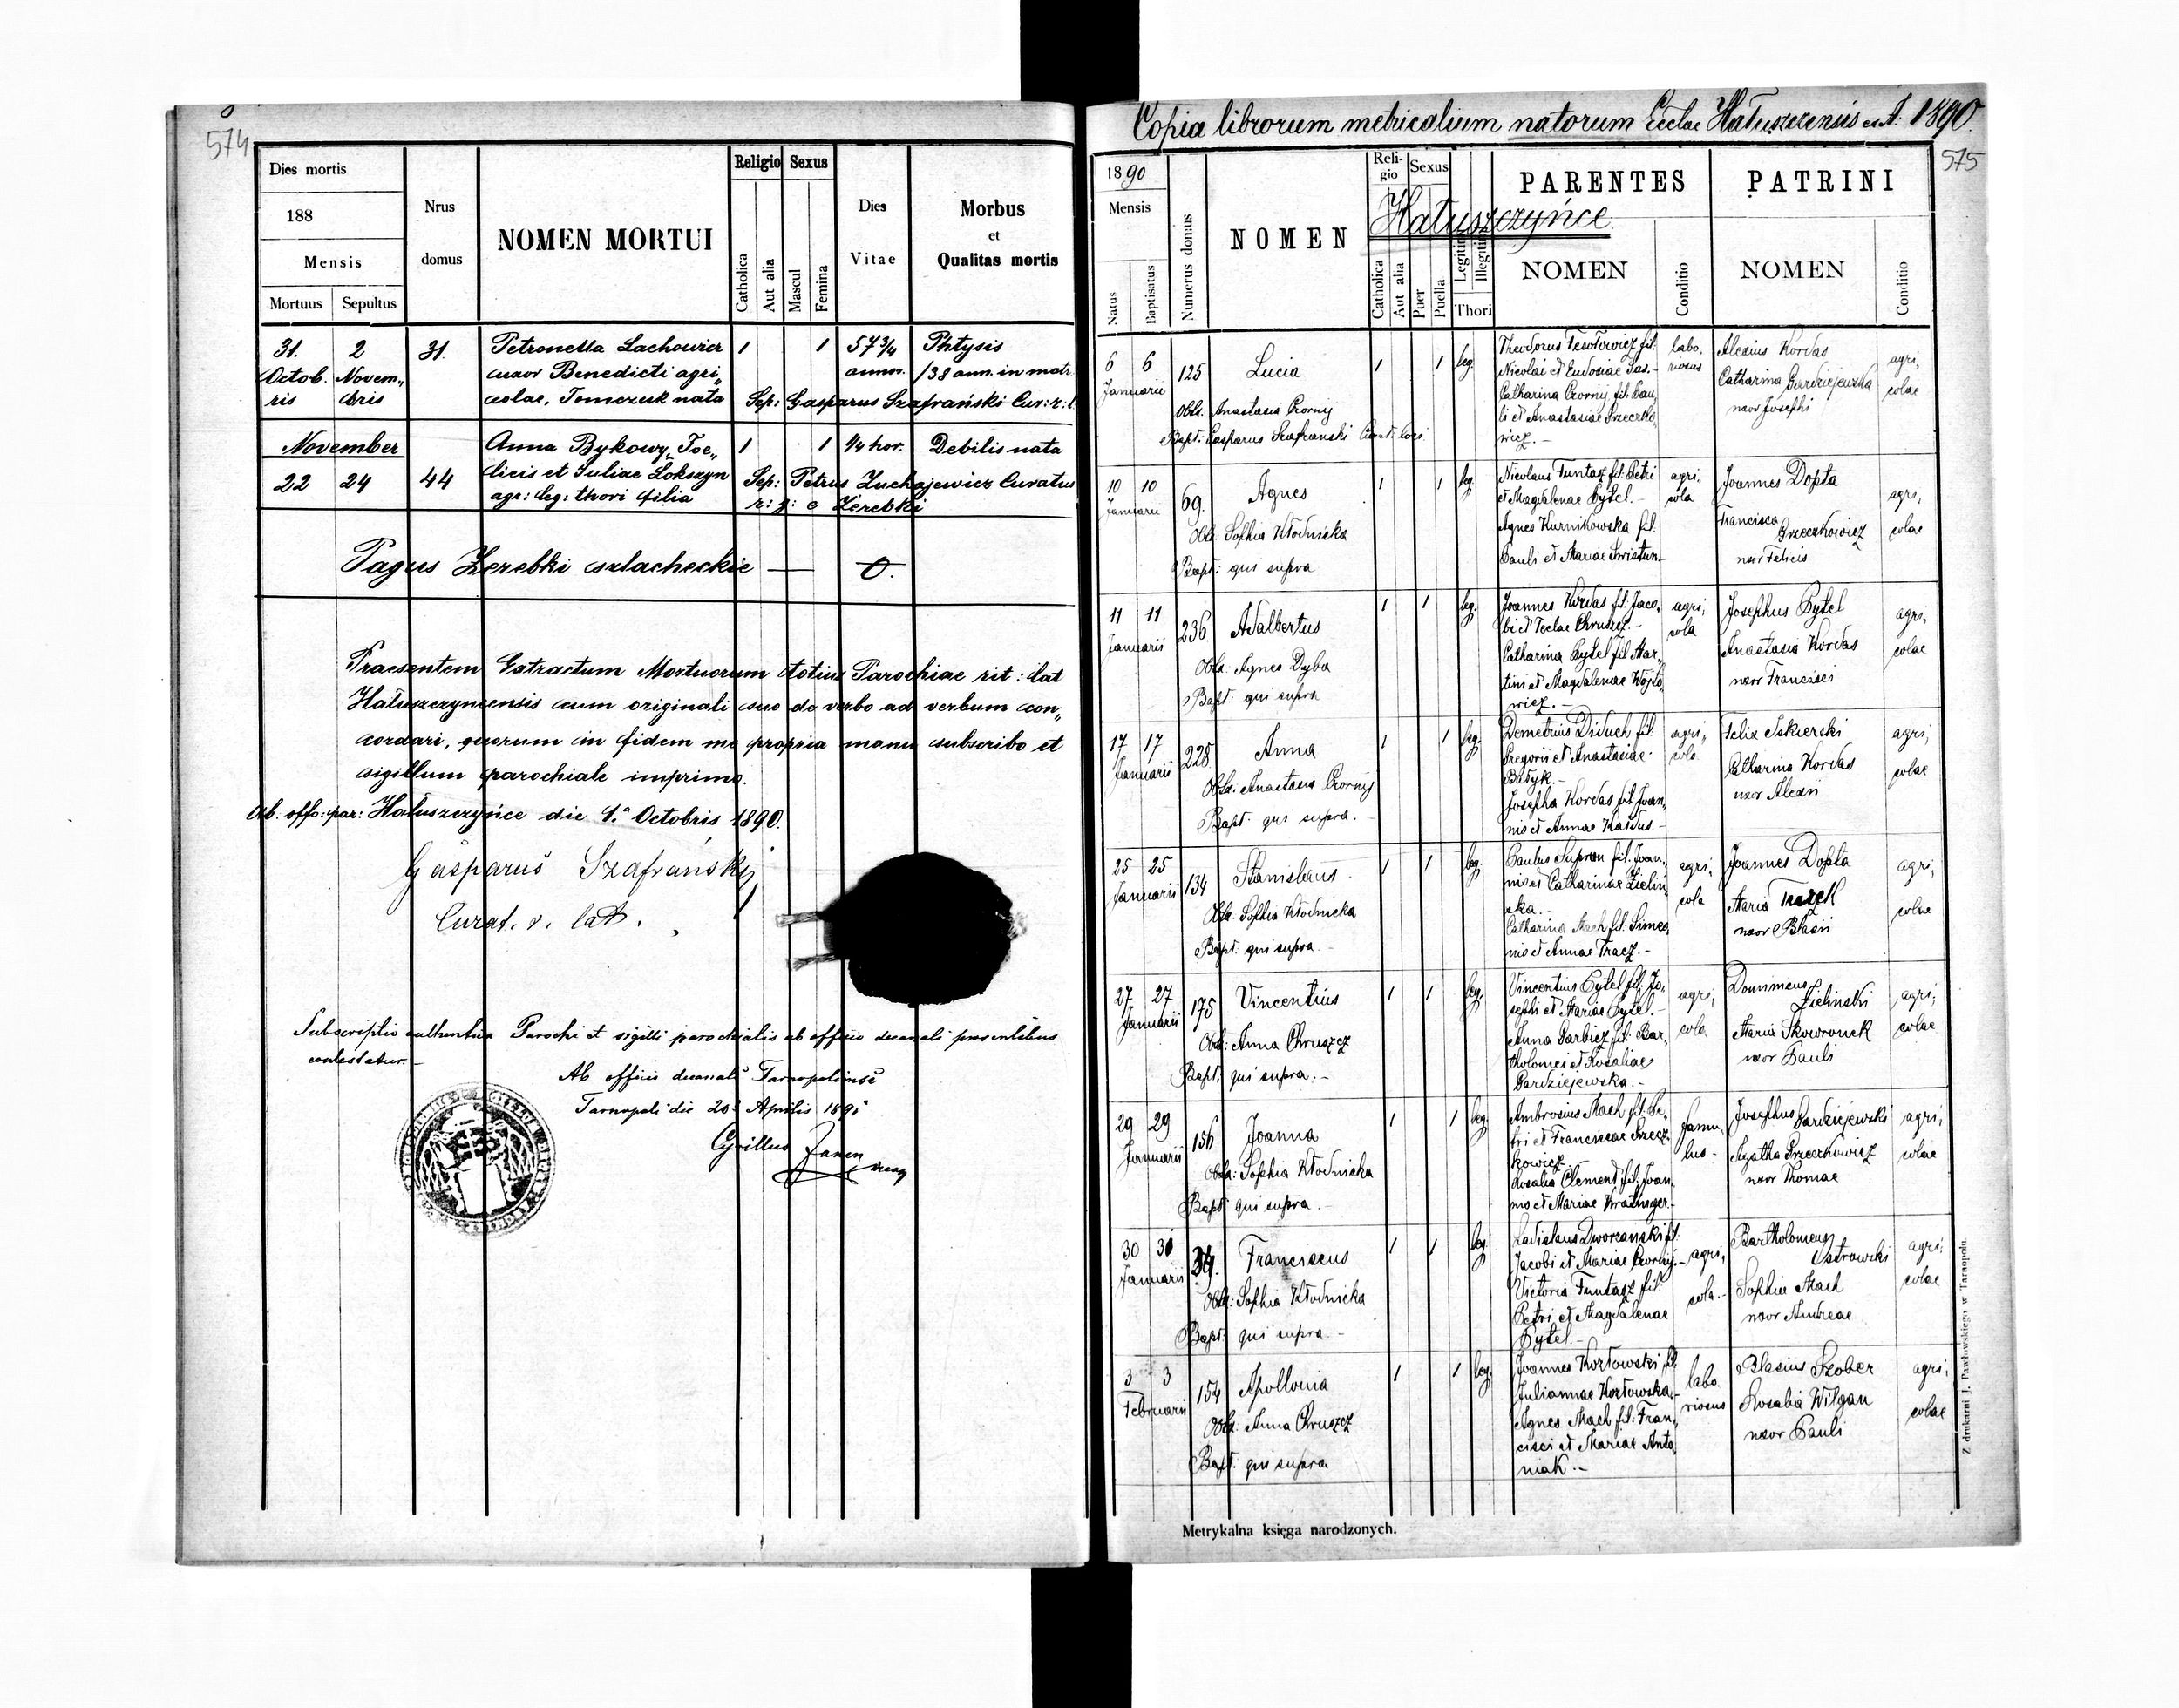 574
Dies mortis
188
Mensis
Mortuus Sepultus
Nrus
domus
NOMEN MORTUI
Religio Sexus
Catholica
Aut alia
Mascul
Femina
Dies
Vitae
Morbus
et
Qualitas mortis
31. 2 31. Petronella Lachowicz 1 1 57 3/4 Phtysis
Octob. Novem„ uxor Benedicti agri„ annor. /38 ann. in matr.
ris bris colae, Tomczuk nata Sep: Gasparus Szafrański Cur: r: l.
November Anna Bykowy, Foe„ 1 1 1/4 hor. Debilis nata
22 24 44 licis et Juliae Łokszyn Sep: Petrus Zuchajewicz Curatus
agr: leg: thori filia r: g: e Żerebki
Pagus Żerebki szlacheckie — 0.
Praesentem Extractum Mortuorum totius Parochiae rit: lat
Hałuszczyncensis cum originali suo de verbo ad verbum con„
cordari, quorum in fidem me propria manu subscribo et
sigillum parochiale imprimo.
Ab. offo: par: Hałuszczyńce die 1.a Octobris 1890.
Gasparus Szafrański
Curat. r. lat.
Subscriptio authentica Parochi et sigilli parochialis ab officio decanali praesentibus
contestatur. —
Ab officio decanali Tarnopolinsi
Tarnopoli die 20 Aprilis 1891
Cyrillus
Copia librorum metricalium natorum Eccl̃ae Hałuszczensis ex A: 1890.
575
1890
Mensis
Natus
Baptisatus
Numerus domus
NOMEN
Reli-
gio
Sexus
Hałuszczyńce
Catholica
Aut alia
Puer
Puella
Legitimi
Illegitimi
Thori
PARENTES
NOMEN
Conditio
PATRINI
NOMEN
Conditio
6 6 125 Lucia 1 1 leg.
Januarii
Obst. Anastasia Czornij
Bapt: Gasparus Szafranski Curat. loci
Nicolai et Eudosiae
Catharina Czornij fil. Pau„
li et Anastasiae Grzeczko„
wicz. —
labo„
riosus
Alexius Kordas
Catharina Gardziejewska
uxor Josephi
agri„
colae
10 10 69. Agnes 1 1 leg.
Januarii
Obst: Sophia Kłodnicka
Bapt: qui supra
Nicolaus Funtasz fil. Petri
et Magdalenae Bytel. —
Agnes Kurnikowska fil.
Pauli et Mariae Swistun —
agri„
cola
Joannes Dopta
Francisca
Grzeczkowicz
uxor Felicis
agri„
colae
11 11 236. Adalbertus 1 1 leg.
Januarii
Obst. Agnes Dyba
Bapt: qui supra
Joannes Kordas fil. Jaco„
bi et Teclae Chruszcz. —
Catharina Bytel fil. Mar„
tini et Magdalenae Wójto„
wicz. —
agri„
cola
Josephus Bytel
Anastasia Kordas
uxor Francisci
agri„
colae
17 17 228. Anna 1 1 leg.
Januarii
Obst. Anastasia Czornij
Bapt: qui supra. —
Demetrius Diduch fil:
Gregorii et Anastasiae
Batyk. —
Josepha Kordas fil. Joan„
nis et Annae Kardus. —
agri„
cola
Felix Sskierski
Catharina Kordas
uxor Alexii
agri„
colae
25 25 134 Stanislaus 1 1 leg.
Januarii
Obst. Sophia Kłodnicka
Bapt: qui supra —
Paulus Supron fil. Joan„
nis et Catharinae Zielin„
ska. —
Catharina Mach fil: Simeo„
nis et Annae Tracz. —
agri„
cola
Joannes Dopta
Maria
uxor Blasii
agri„
colae
27 27 175 Vincentius 1 1 leg.
Januarii
Obst: Anna Chruszcz
Bapt: qui supra. —
Vincentius Bytel fil: Jo„
sephi et Mariae Bytel. —
Anna Garbicz fil: Bar„
tholomei et Rosaliae
Gardziejewska. —
agri„
cola
Dominicus
Zielinski
Maria Skowronek
uxor Pauli
agri„
colae
29 29 156 Joanna 1 1 leg.
Januarii
Obst: Sophia Kłodnicka
Bapt: qui supra. —
Ambrosius Mach fil. Pe„
tri et Franciscae Grzecz„
kowicz
Rosalia Clement fil: Joan„
nis et Mariae
famu„
lus. —
Josephus Gardziejewski
Agatha Grzeczkowicz
uxor Thomae
agri„
colae
30 30 34. Franciscus 1 1 leg.
Januarii
Obst: Sophia Kłodnicka
Bapt: qui supra —
Ladislaus Dworzanski fil.
Jacobi et Mariae Czornij. —
Victoria Funtasz fil.
Petri et Magdalenae
Bytel. —
agri„
cola. —
Bartholomeus
Ostrowski
Sophia Mach
uxor Andreae
agri„
colae
3 3 154 Apollonia 1 1 leg.
Februarii
Obst: Anna Chruszcz
Bapt: qui supra
Joannes Kozłowski fil.
Juliannae Kozłowska. —
Agnes Mach fil: Fran„
cisci et Mariae Anto„
niak. —
labo„
riosus
Blasius Szober
Rosalia Wilgan
uxor Pauli
agri„
colae
Metrykalna księga narodzonych.
Z drukarni J. Pawłowskiego w Tarnopolu.